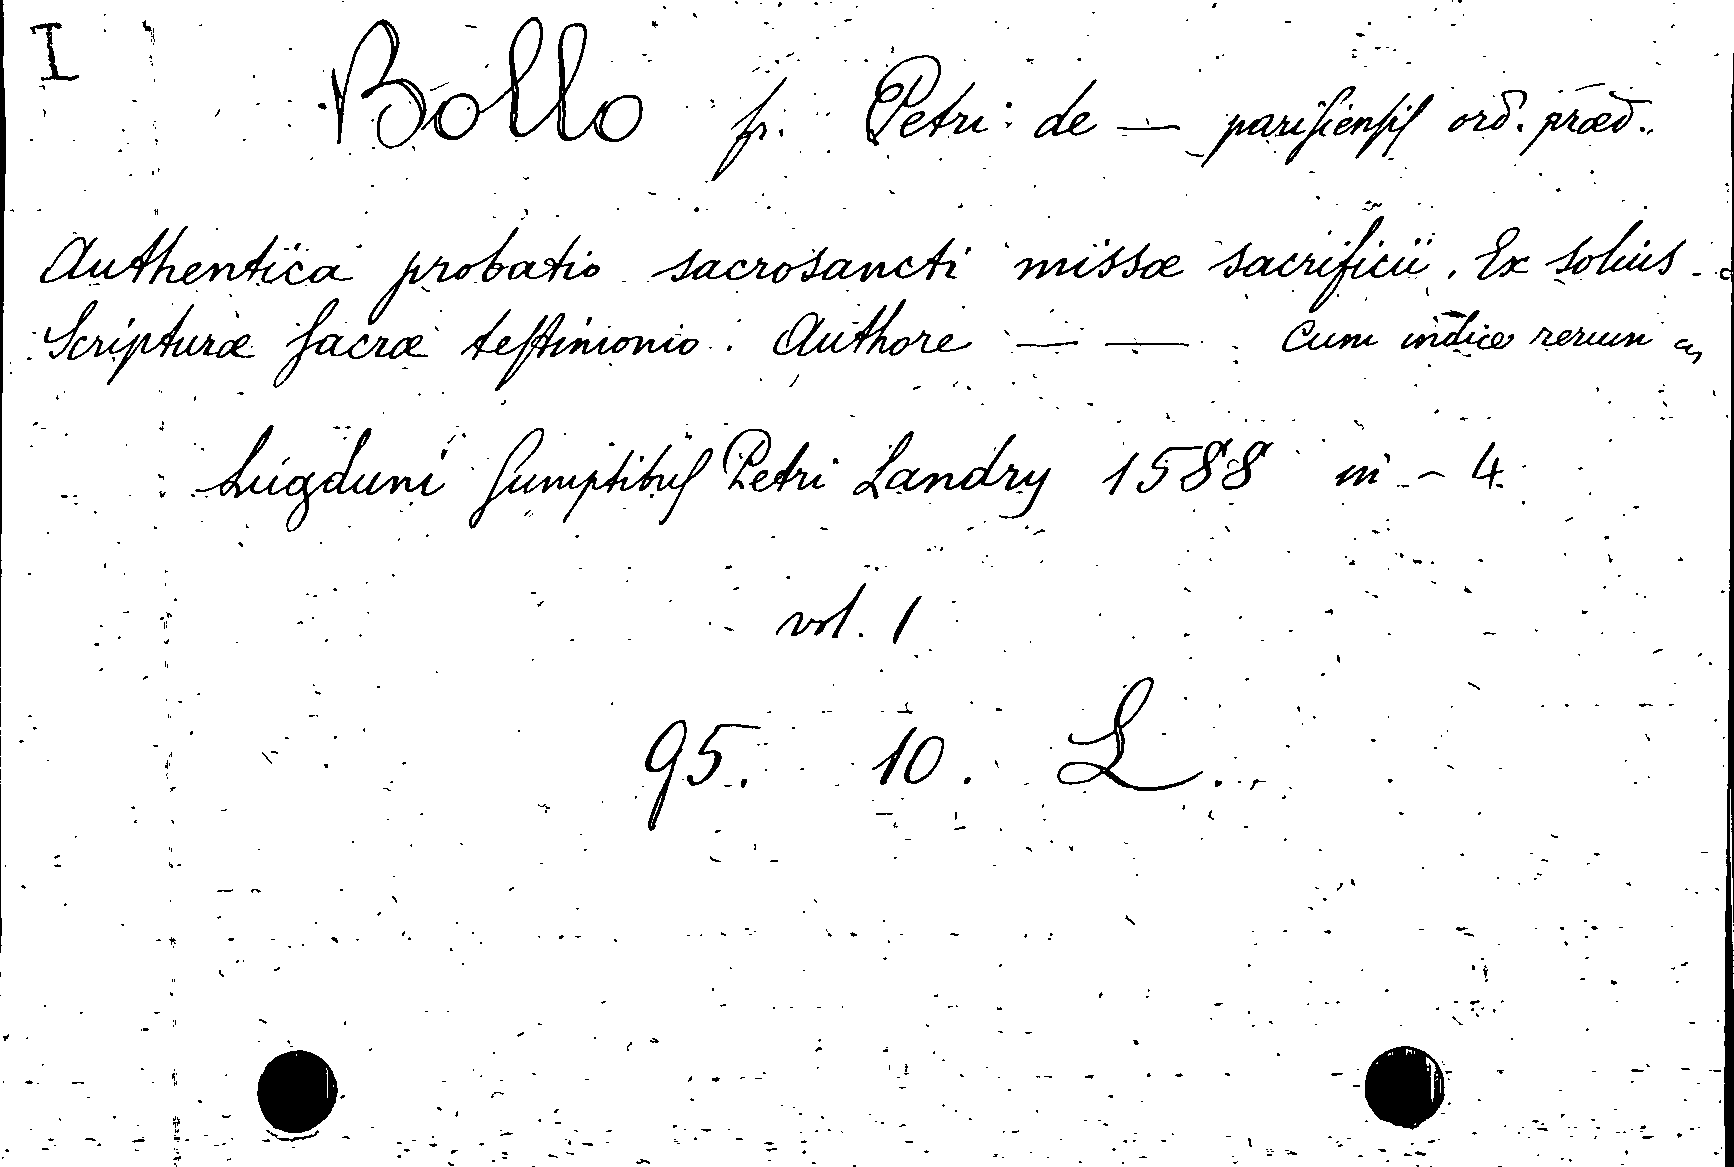 I
Bollo fr. Petri: de — pariſienſiſ ord̄. præd̄.
Authentica probatio sacrosancti missæ sacrificii. Ex solius
Scripturæ ſacræ teſtimonio. Authore — — Cum indice rerum
Lugduni ſumptibuſ Petri Landry 1588 in - 4.
vol. 1
95. 10. L.